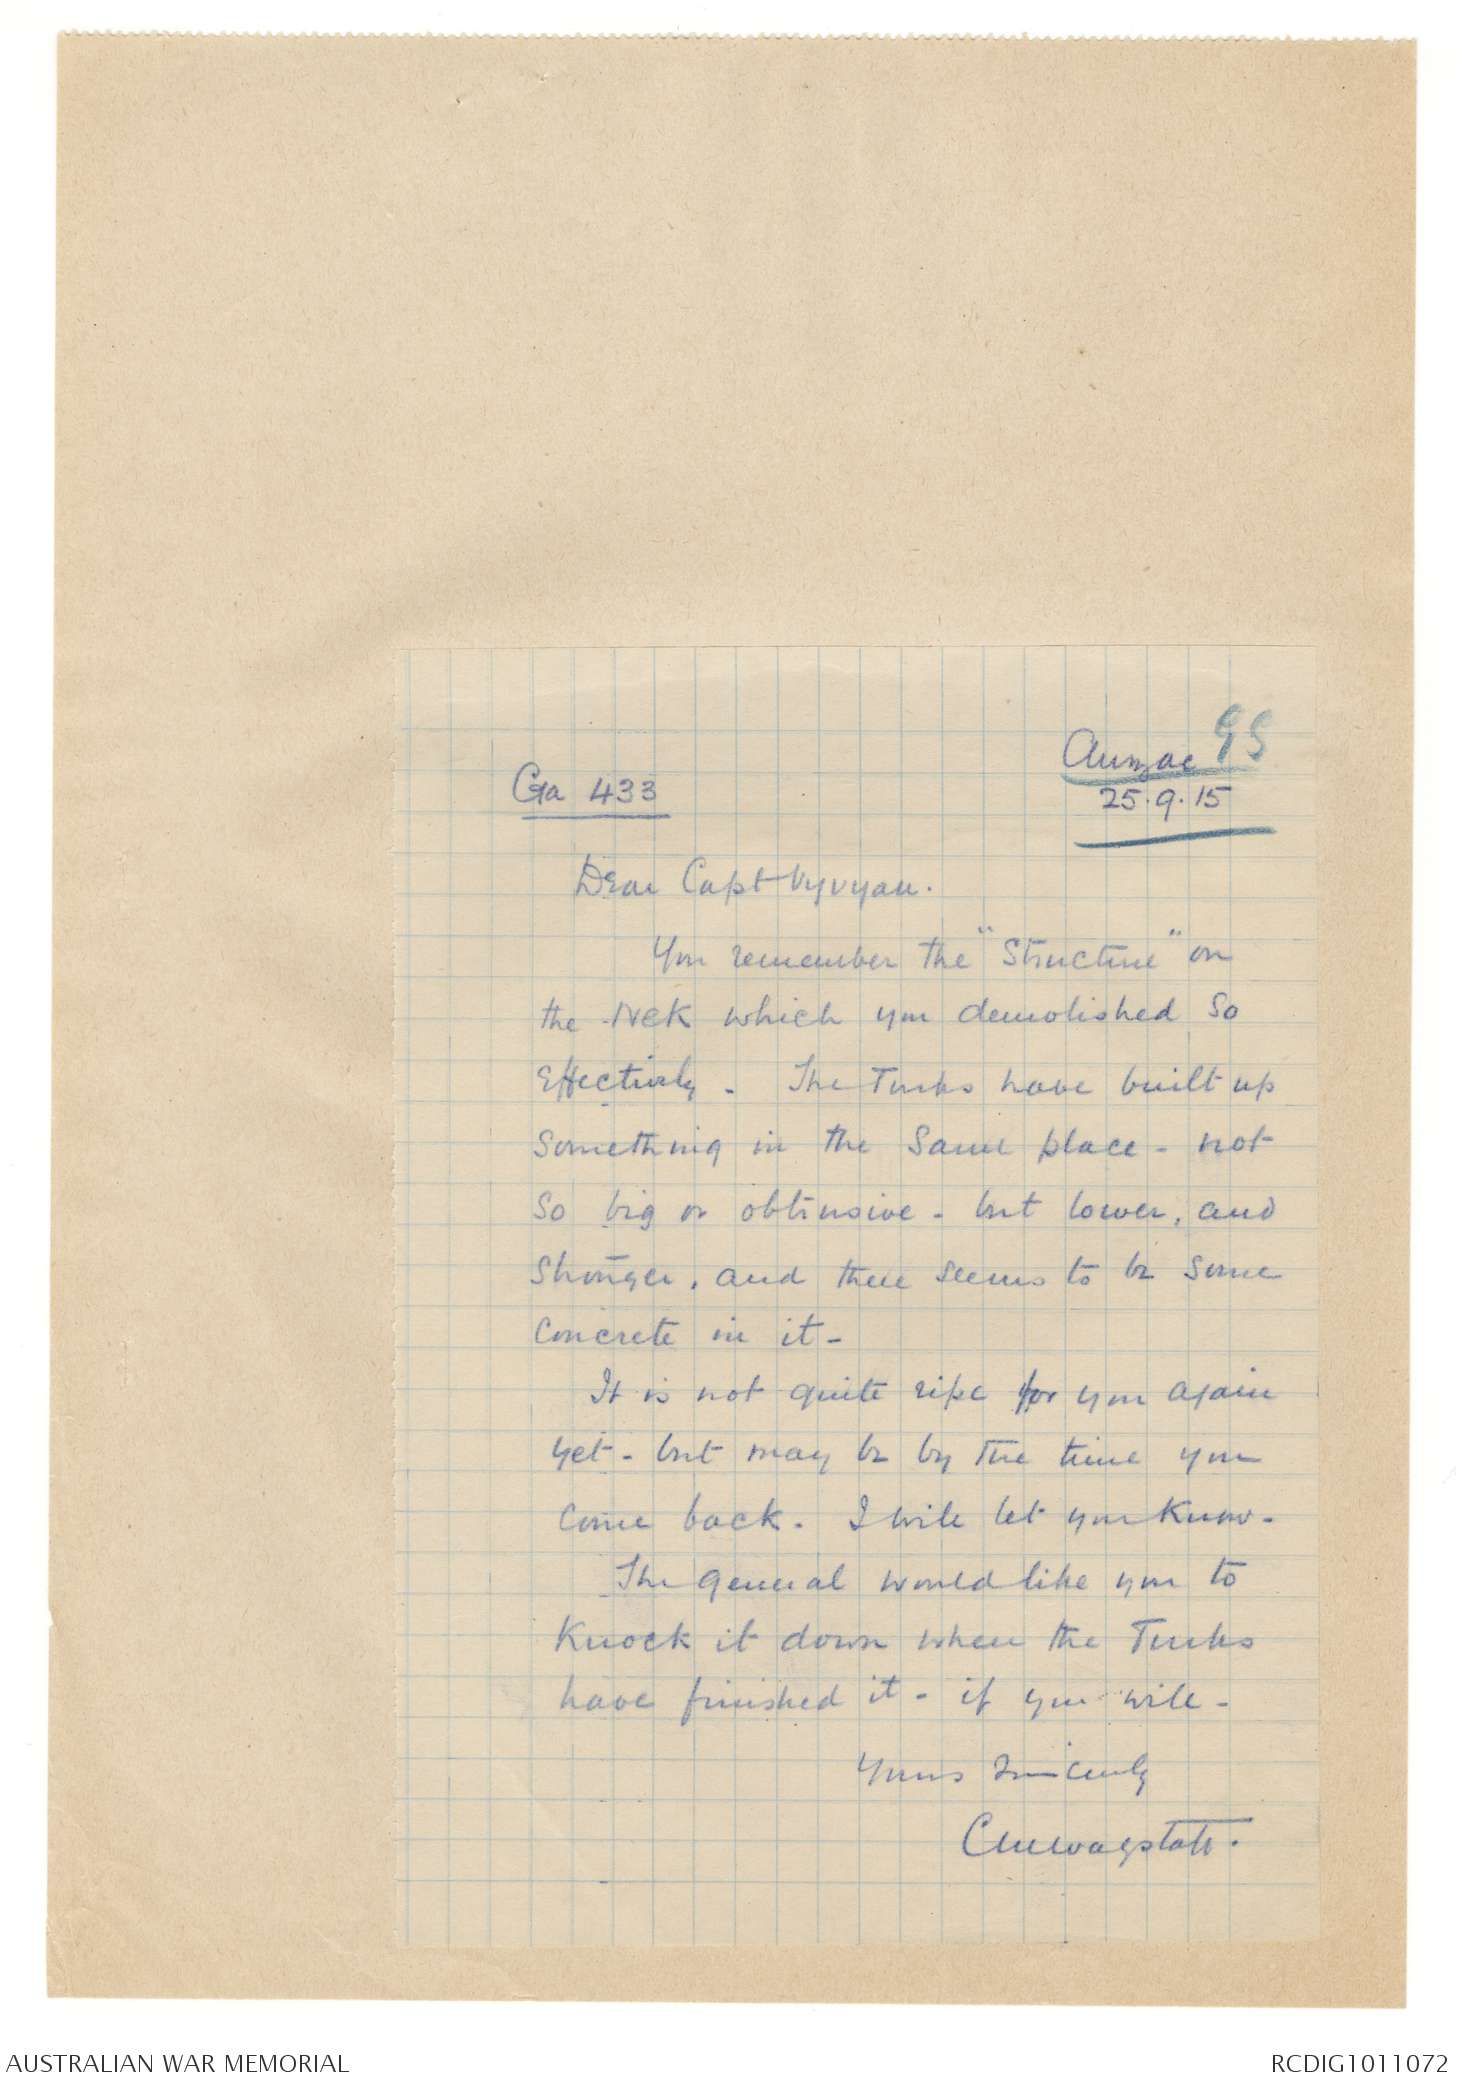 GS
Anzac
25.9.15
Ga 433
Dear Capt Vyvyan.
You remember the "Structure" on
the Nek which you demolished so
effectively - The Turks have built up
something in the same place - not
so big or obtrusive - but lower, and
stronger, and there seems to be some
concrete in it -
It is not quite ripe for you again
yet - but may be by the time you
come back. I will let you know -
The general would like you to
knock it down when the Turks
have finished it - if you will -
Yours sincerely
CMWagstaff.
AUSTRALIAN WAR MEMORIAL
RCDIG1011072